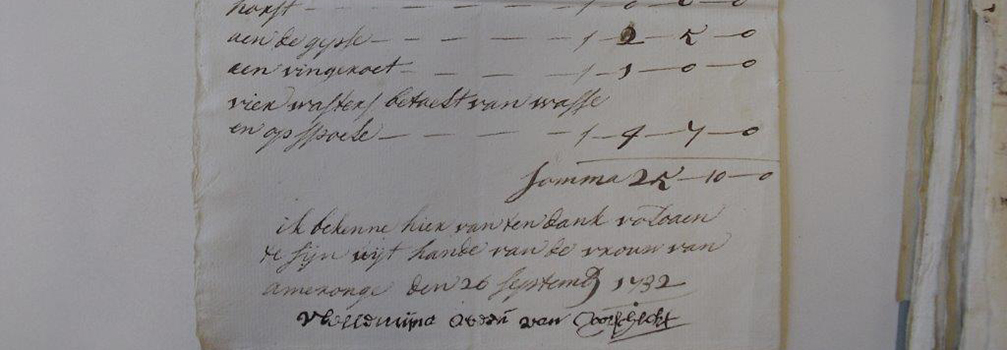 horst — — — — — / — 0 — 0 — 0
aen de gyste — — — — / 2 — 5 — 0
aen vingeroet — — — / 1 — 0 — 0
vier wasters betaelt van wasse
en op spoele — — — — / 4 — 7 — 0
somma 25 — 10 — 0
ik bekenne hier van ten dank voldaen
te sijn uijt hande van de vrouw van
ameronge den 26 septemb 1732
van